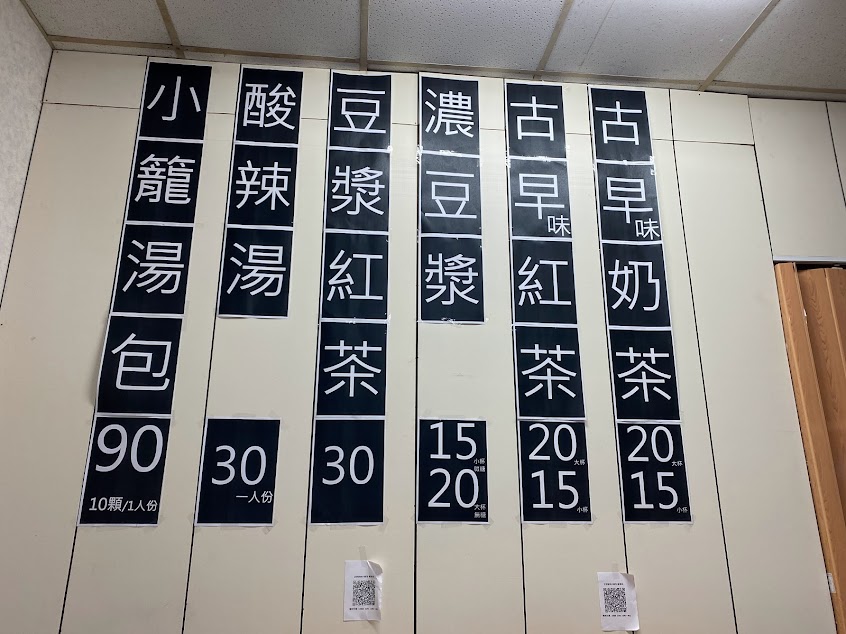 小籠湯包
90
10顆/1人份
酸辣湯
30
一人份
豆漿紅茶
30
濃豆漿
15 小杯
微糖
20 大杯
無糖
古早味紅茶
20 大杯
15 小杯
古早味奶茶
20 大杯
15 小杯